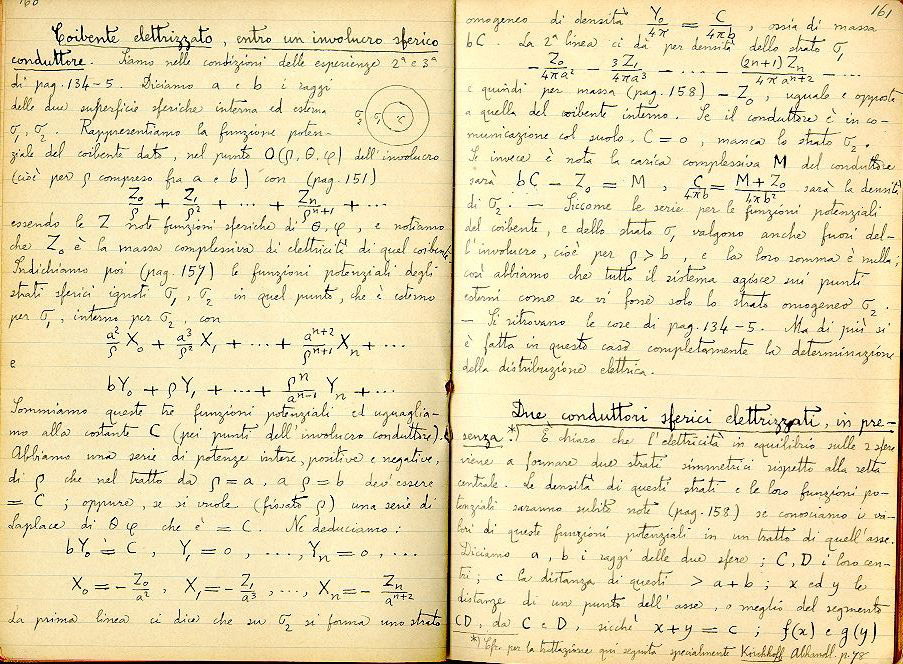 160
Coibente elettrizzato, entro un involucro sferico
conduttore. Siamo nelle condizioni delle esperienze 2ª e 3ª
di pag. 134-5. Diciamo a e b i raggi
delle due superficie sferiche interna ed esterna
σ₁, σ₂. Rappresentiamo la funzione poten-
ziale del coibente dato, nel punto O(ρ, θ, φ) dell'involucro
(cioè per ρ compreso fra a e b) con (pag. 151)
Z₀/ρ + Z₁/ρ² + ... + Zₙ/ρⁿ⁺¹ + ...
essendo le Z note funzioni sferiche di θ, φ, e notiamo
che Z₀ è la massa complessiva di elettricità di quel coibente.
Indichiamo poi (pag. 157) le funzioni potenziali degli
strati sferici ignoti σ₁, σ₂ in quel punto, che è esterno
per σ₁, interno per σ₂, con
a²/ρ X₀ + a³/ρ² X₁ + ... + aⁿ⁺²/ρⁿ⁺¹ Xₙ + ...
e
bY₀ + ρY₁ + ... + ρⁿ/aⁿ⁻¹ Yₙ + ...
Sommiamo queste tre funzioni potenziali ed uguaglia-
mo alla costante C (pei punti dell'involucro conduttore).
Abbiamo una serie di potenze intere, positive e negative,
di ρ che nel tratto da ρ = a, a ρ = b dev'essere
= C ; oppure, se si vuole (fissato ρ) una serie di
Laplace di θ φ che è = C. Ne deduciamo:
bY₀ = C, Y₁ = 0, ..., Yₙ = 0, ...
X₀ = - Z₀/a², X₁ = - Z₁/a³, ..., Xₙ = - Zₙ/aⁿ⁺²
La prima linea ci dice che su σ₂ si forma uno strato
σ₂ σ₁ C
161
omogeneo di densità Y₀/4π = C/4πb, ossia di massa
bC. La 2ª linea ci dà per densità dello strato σ₁
- Z₀/4πa² - 3Z₁/4πa³ - ... - (2n+1)Zₙ/4πaⁿ⁺² - ...
e quindi per massa (pag. 158) - Z₀, uguale e opposta
a quella del coibente interno. Se il conduttore è in co-
municazione col suolo, C = 0, manca lo strato σ₂.
Se invece è nota la carica complessiva M del conduttore
sarà bC - Z₀ = M, C/4πb = M+Z₀/4πb² sarà la densità
di σ₂. — Siccome le serie per le funzioni potenziali
del coibente, e dello strato σ₁ valgono anche fuori del-
l'involucro, cioè per ρ > b, e la loro somma è nulla;
così abbiamo che tutto il sistema agisce sui punti
esterni come se vi fosse solo lo strato omogeneo σ₂.
— Si ritrovano le cose di pag. 134-5. Ma di più si
è fatta in questo caso completamente la determinazione
della distribuzione elettrica.
Due conduttori sferici elettrizzati, in pre-
senza.*) È chiaro che l'elettricità in equilibrio sulle 2 sfere
viene a formare due strati simmetrici rispetto alla retta
centrale. Le densità di questi strati e le loro funzioni po-
tenziali saranno subito note (pag. 158) se conosciamo i va-
lori di queste funzioni potenziali in un tratto di quell'asse.
Diciamo a, b i raggi delle due sfere; C, D i loro cen-
tri; c la distanza di questi > a+b; x ed y le
distanze di un punto dell'asse, o meglio del segmento
CD, da C e D, sicchè x + y = c; f(x) e g(y)
*) Cfr. per la trattazione qui seguita specialmente Kirchhoff Abhandl. p. 78